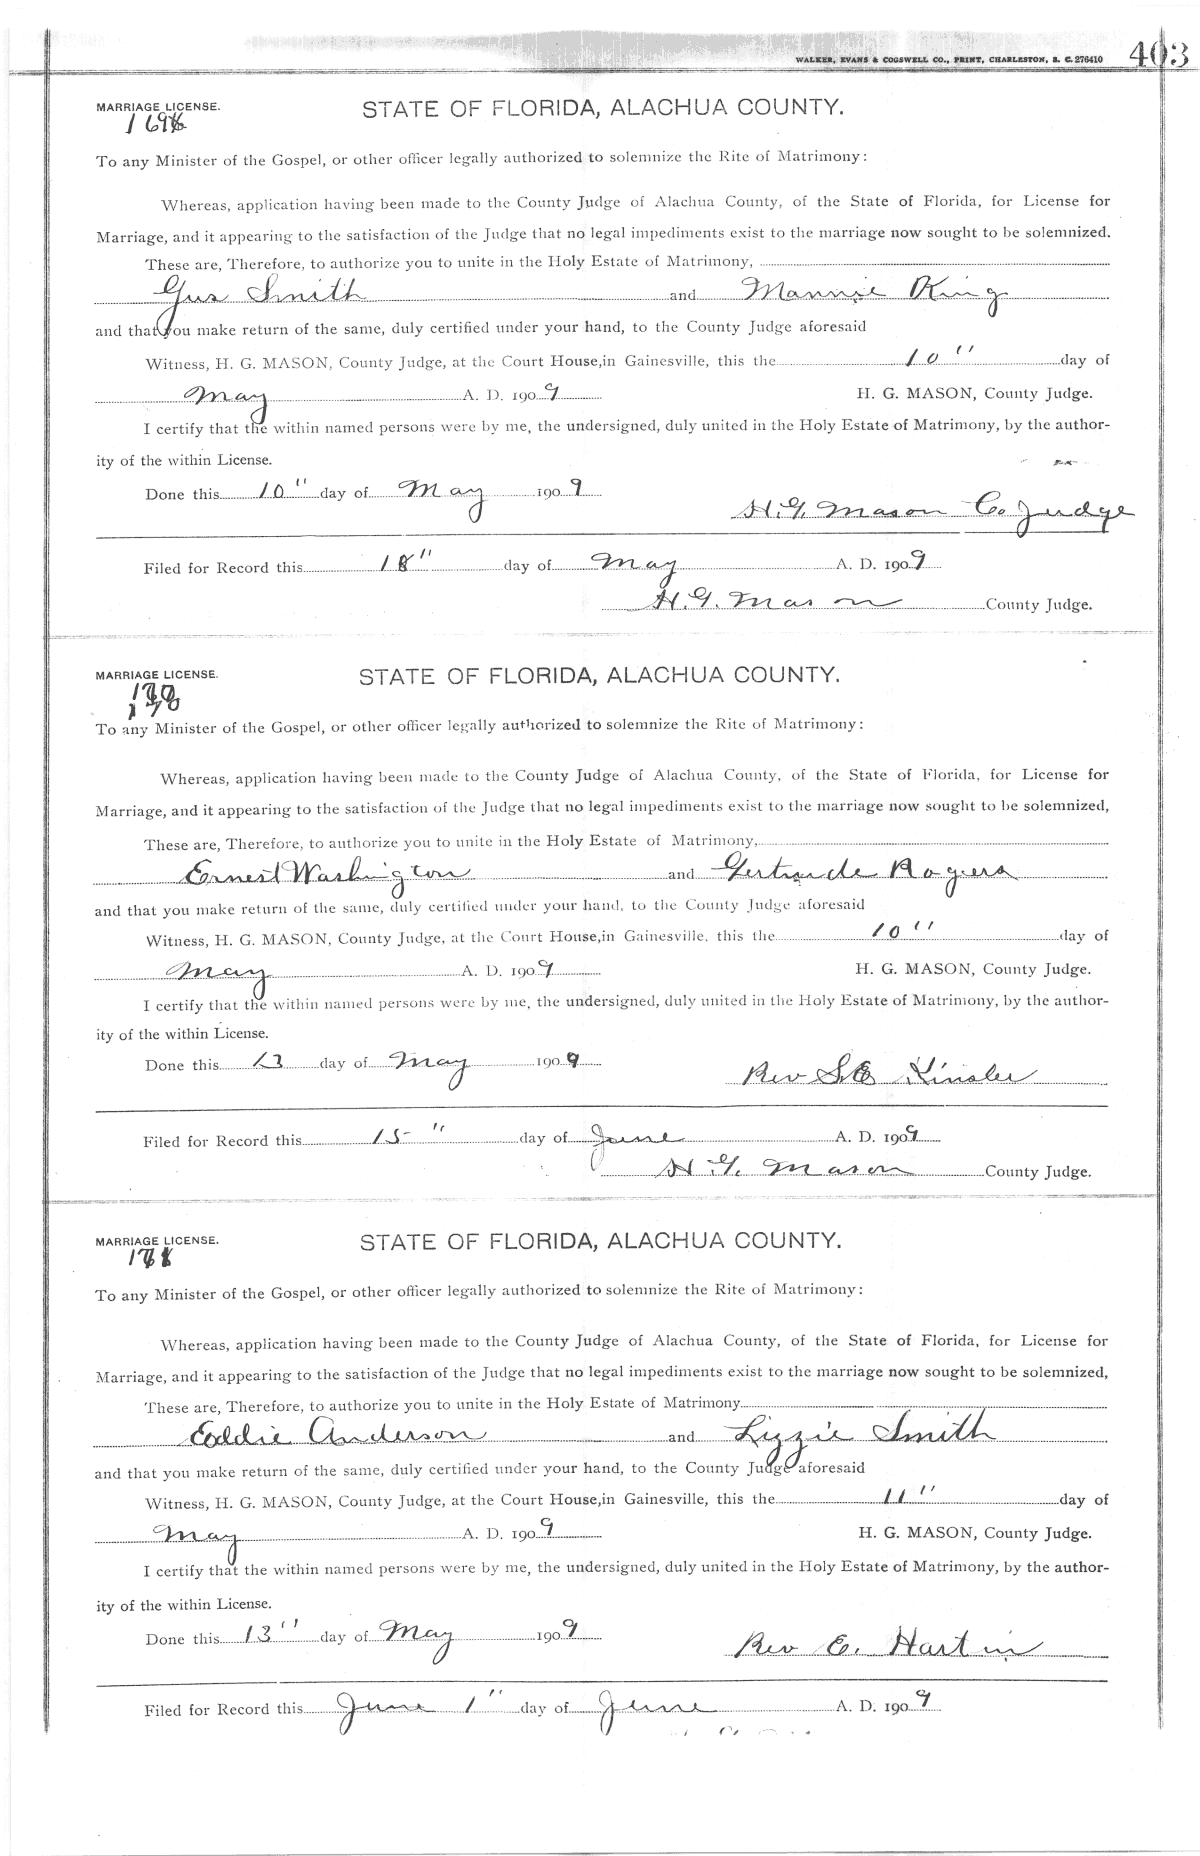 WALKER, EVANS & COGSWELL CO., PRINT, CHARLESTON, S. C. 276410 403
MARRIAGE LICENSE. STATE OF FLORIDA, ALACHUA COUNTY.
To any Minister of the Gospel, or other officer legally authorized to solemnize the Rite of Matrimony:
Whereas, application having been made to the County Judge of Alachua County, of the State of Florida, for License for
Marriage, and it appearing to the satisfaction of the Judge that no legal impediments exist to the marriage now sought to be solemnized.
These are, Therefore, to authorize you to unite in the Holy Estate of Matrimony,
Gus Smith and Mannie King
and that you make return of the same, duly certified under your hand, to the County Judge aforesaid
Witness, H. G. MASON, County Judge, at the Court House, in Gainesville, this the 10" day of
May A. D. 1909 H. G. MASON, County Judge.
I certify that the within named persons were by me, the undersigned, duly united in the Holy Estate of Matrimony, by the author-
ity of the within License.
Done this 10" day of May 1909
H. G. Mason Co Judge
Filed for Record this 18" day of May A. D. 1909
H. G. Mason County Judge.
MARRIAGE LICENSE. STATE OF FLORIDA, ALACHUA COUNTY.
170
To any Minister of the Gospel, or other officer legally authorized to solemnize the Rite of Matrimony:
Whereas, application having been made to the County Judge of Alachua County, of the State of Florida, for License for
Marriage, and it appearing to the satisfaction of the Judge that no legal impediments exist to the marriage now sought to be solemnized,
These are, Therefore, to authorize you to unite in the Holy Estate of Matrimony,
Ernest Washington and Gertrude Rogers
and that you make return of the same, duly certified under your hand, to the County Judge aforesaid
Witness, H. G. MASON, County Judge, at the Court House, in Gainesville, this the 10" day of
May A. D. 1909 H. G. MASON, County Judge.
I certify that the within named persons were by me, the undersigned, duly united in the Holy Estate of Matrimony, by the author-
ity of the within License.
Done this 13 day of May 1909
Rev S. E. Kinsler
Filed for Record this 15" day of June A. D. 1909
H. G. Mason County Judge.
MARRIAGE LICENSE. STATE OF FLORIDA, ALACHUA COUNTY.
To any Minister of the Gospel, or other officer legally authorized to solemnize the Rite of Matrimony:
Whereas, application having been made to the County Judge of Alachua County, of the State of Florida, for License for
Marriage, and it appearing to the satisfaction of the Judge that no legal impediments exist to the marriage now sought to be solemnized,
These are, Therefore, to authorize you to unite in the Holy Estate of Matrimony
Eddie Anderson and Lizzie Smith
and that you make return of the same, duly certified under your hand, to the County Judge aforesaid
Witness, H. G. MASON, County Judge, at the Court House, in Gainesville, this the 11" day of
May A. D. 1909 H. G. MASON, County Judge.
I certify that the within named persons were by me, the undersigned, duly united in the Holy Estate of Matrimony, by the author-
ity of the within License.
Done this 13" day of May 1909
Rev E. Hartin
Filed for Record this June 1" day of June A. D. 1909